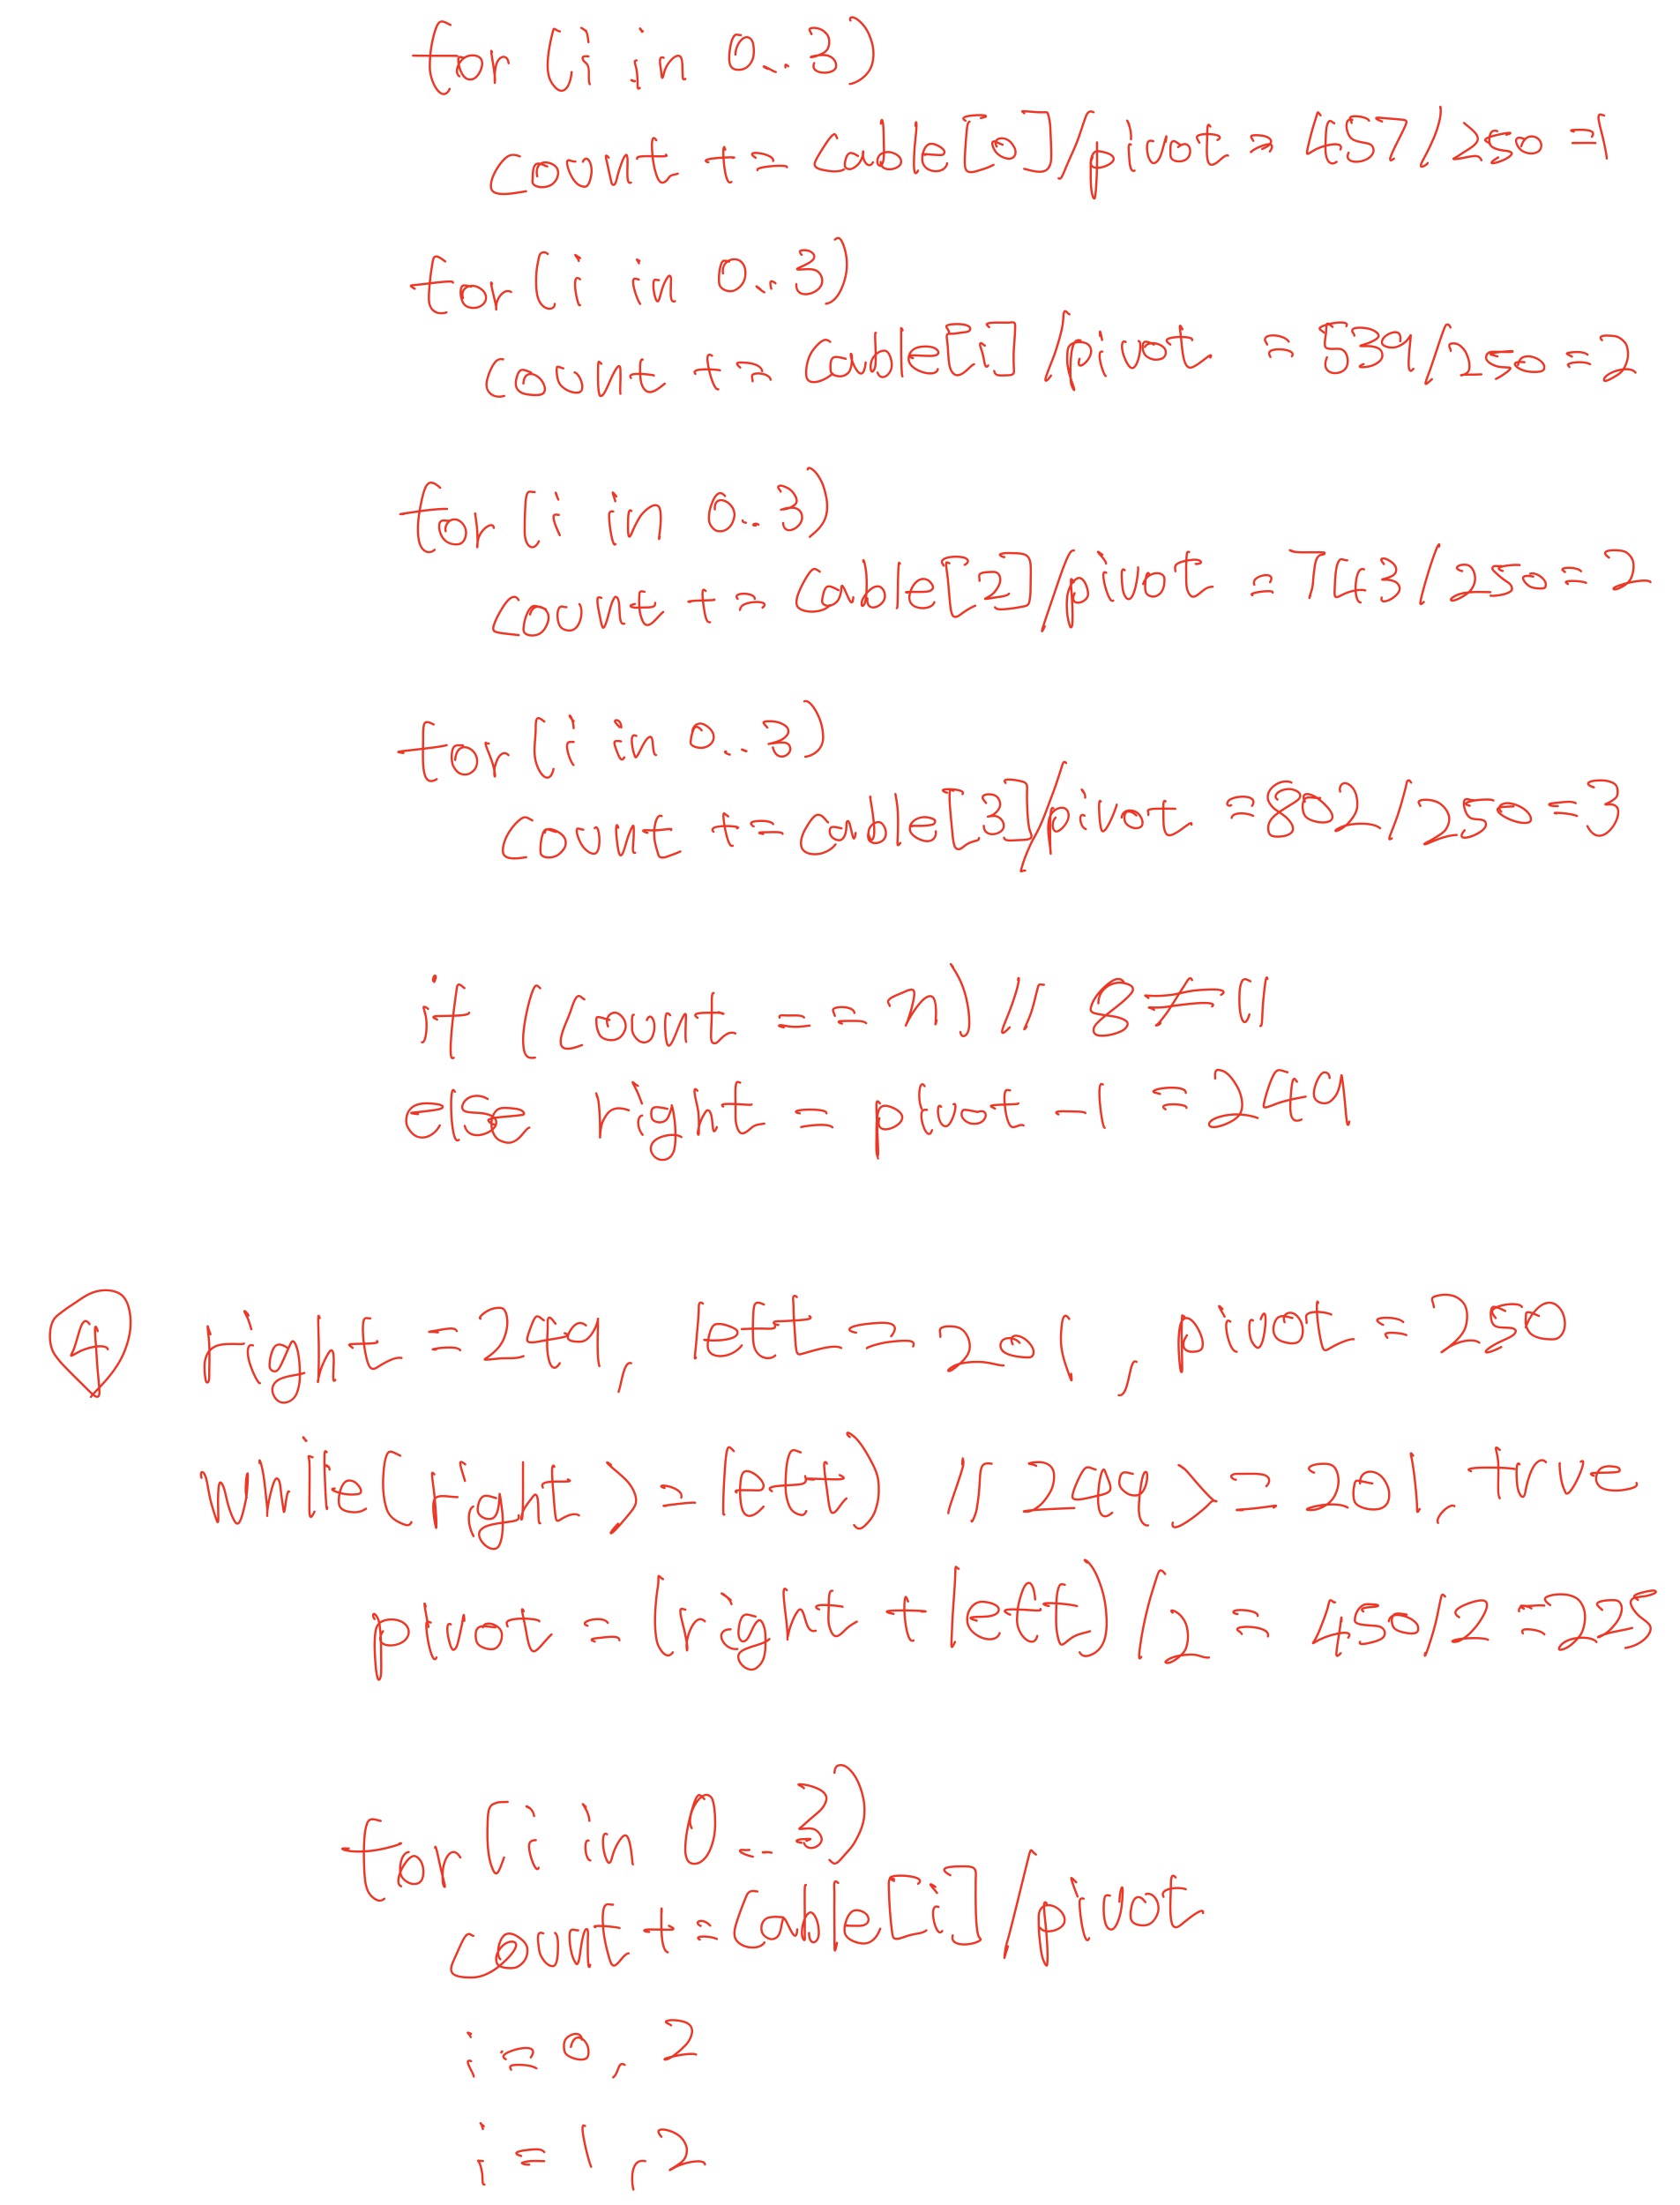 for (i in 0..3)
count += cable[0]/pivot = 457/250 = 1
for (i in 0..3)
count += cable[i] /pivot = 539/250 = 2
for (i in 0..3)
count += cable[2]/pivot = 743/250 = 2
for (i in 0..3)
count += cable[3]/pivot = 802/250 = 3
if (count == n) // 8 ≠ 11
else right = pivot - 1 = 249
④ right = 249, left = 201, pivot = 250
while(right >= left) // 249 >= 201, true
pivot = (right + left)/2 = 450/2 = 225
for (i in 0..3)
count += cable[i]/pivot
i = 0, 2
i = 1, 2